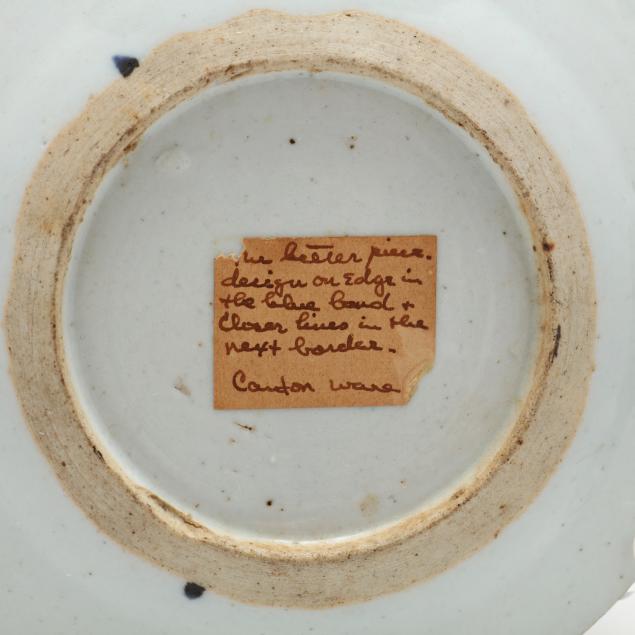 better piece.
design on Edge in
the blue band +
Closer lines in the
next border.
Canton ware